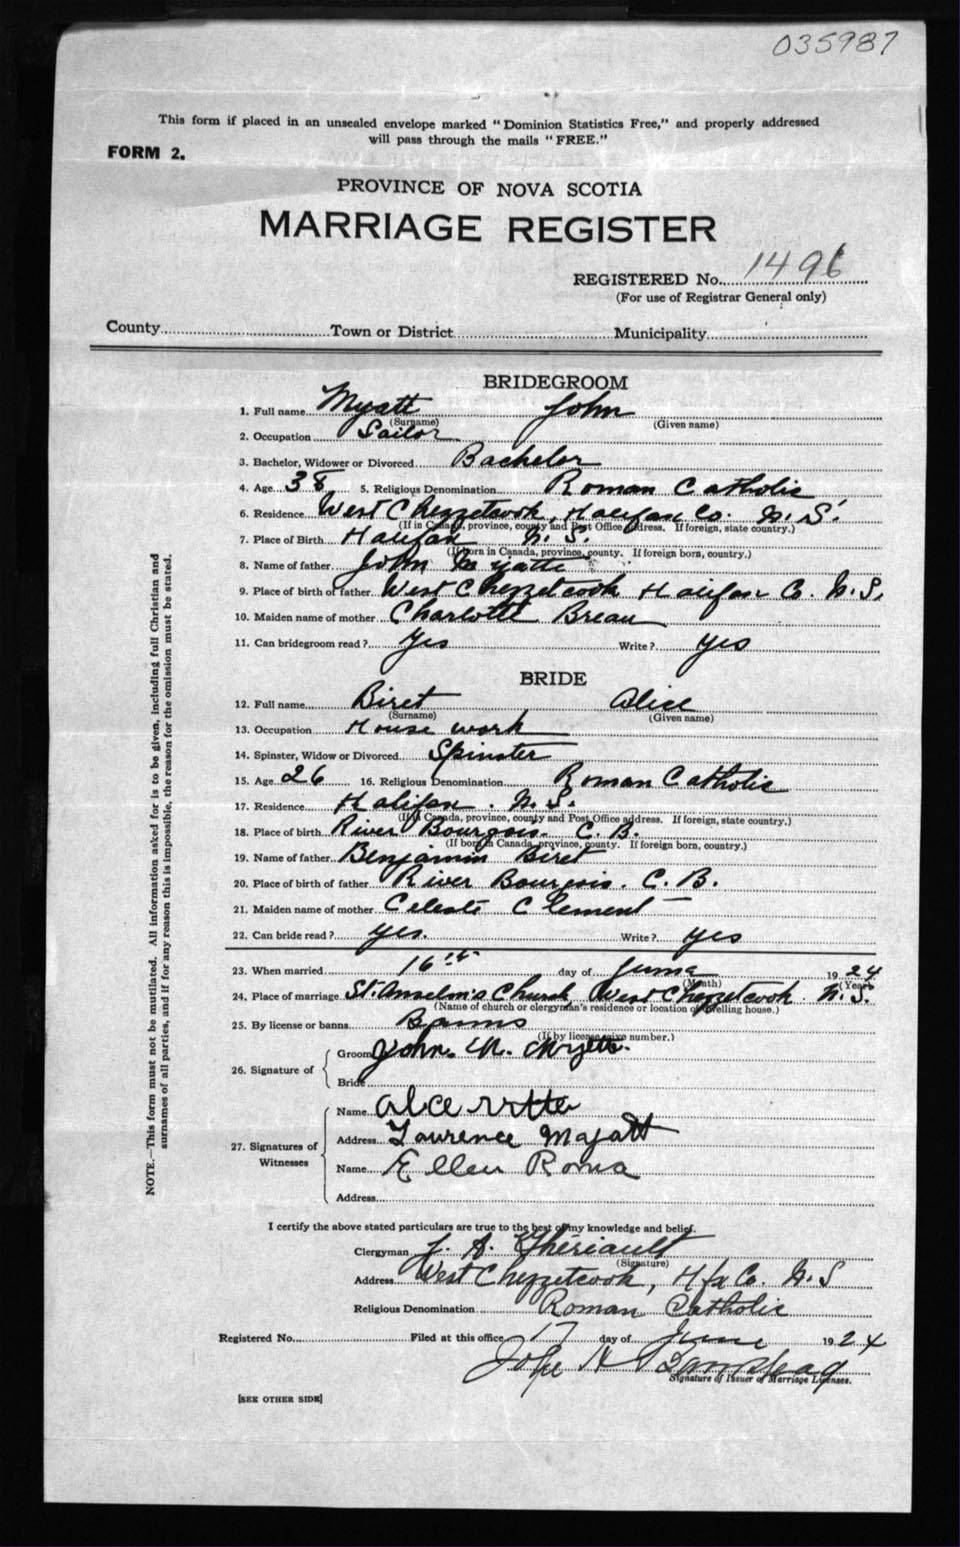 035987
This form if placed in an unsealed envelope marked "Dominion Statistics Free," and properly addressed
will pass through the mails "FREE."
FORM 2.
PROVINCE OF NOVA SCOTIA
MARRIAGE REGISTER
REGISTERED No. 1496
(For use of Registrar General only)
County Town or District Municipality
BRIDEGROOM
1. Full name Myatt John
(Surname) (Given name)
2. Occupation Sailor
3. Bachelor, Widower or Divorced Bachelor
4. Age 38 5. Religious Denomination Roman Catholic
6. Residence West Chezzetcook, Halifax Co. N.S.
(If in Canada, province, county and Post Office address. If foreign, state country.)
7. Place of Birth Halifax N.S.
(If born in Canada, province, county. If foreign born, country.)
8. Name of father John Myatt
9. Place of birth of father West Chezzetcook Halifax Co. N.S.
10. Maiden name of mother Charlotte Breau
11. Can bridegroom read? Yes Write? Yes
BRIDE
12. Full name Biret Alice
(Surname) (Given name)
13. Occupation House work
14. Spinster, Widow or Divorced Spinster
15. Age 26 16. Religious Denomination Roman Catholic
17. Residence Halifax. N.S.
(If in Canada, province, county and Post Office address. If foreign, state country.)
18. Place of birth River Bourgois. C.B.
(If born in Canada, province, county. If foreign born, country.)
19. Name of father Benjamin Biret
20. Place of birth of father River Bourgois. C.B.
21. Maiden name of mother Celeste Clement
22. Can bride read? yes. Write? yes
23. When married 16th day of June 1924
(Month) (Year)
24. Place of marriage St. Anselm's Church, West Chezzetcook. N.S.
(Name of church or clergyman's residence or location of dwelling house.)
25. By license or banns Banns
(If by license give number.)
26. Signature of
Groom John. N. Myett.
Bride
27. Signatures of
Witnesses
Name
Address Laurence Myatt
Name Ellen Roma
Address
I certify the above stated particulars are true to the best of my knowledge and belief.
Clergyman J. A. Thériault
(Signature)
Address West Chezzetcook, Hfx Co. N.S
Religious Denomination Roman Catholic
Registered No. Filed at this office 17 day of June 1924
John H
Signature of Issuer of Marriage Licenses.
[SEE OTHER SIDE]
NOTE.—This form must not be mutilated. All information asked for is to be given, including full Christian and
surnames of all parties, and if for any reason this is impossible, the reason for the omission must be stated.